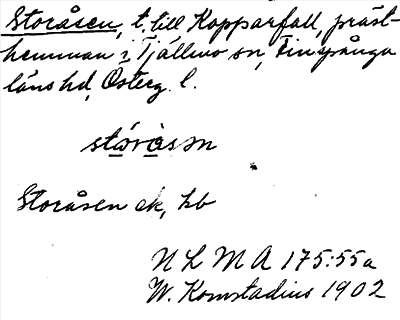 Storåsen, t. till Kopparfall, präst-
hemman i Tjällmo sn, Finspånga
läns hd, Österg. l.
stóràsm
Storåsen ek, hb
N L M A 175:55a
W. Komstadius 1902